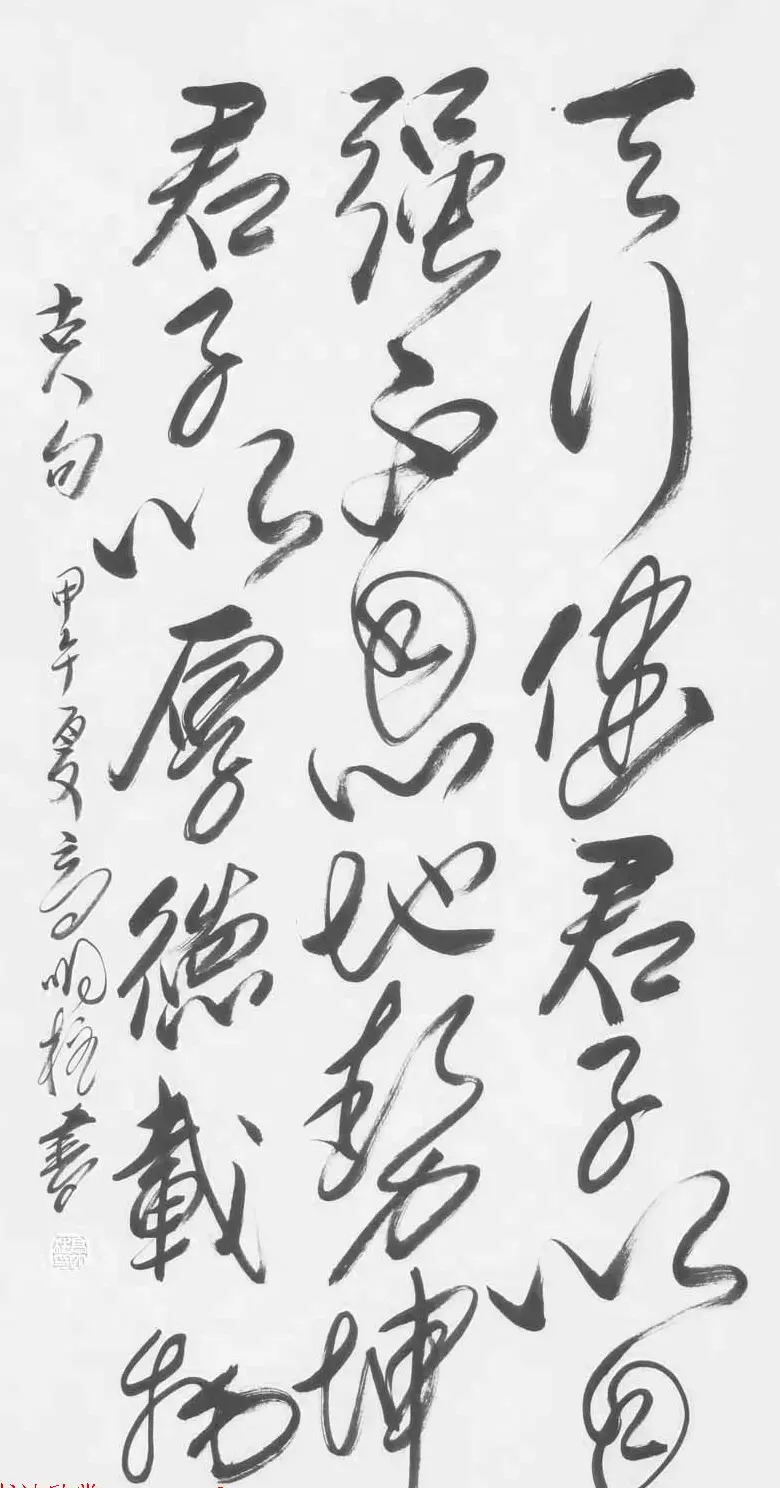 天行健君子以自
强不息地势坤
君子以厚德载物
古人句 甲午夏高明柱書